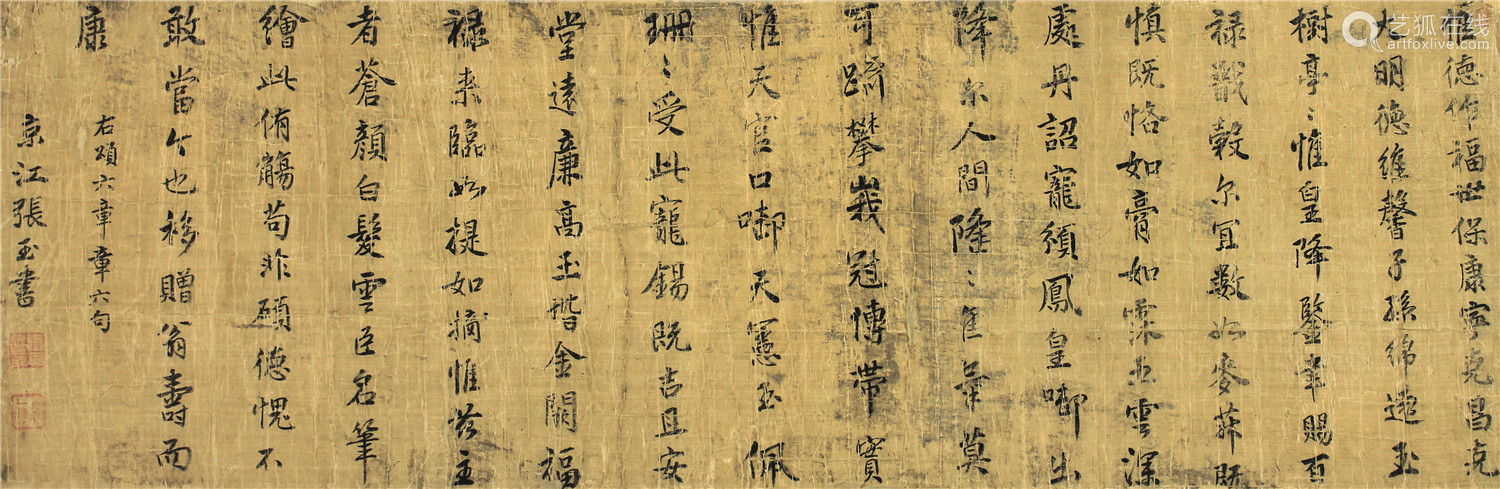 惟德作福世保康寧克昌克
大明德維馨子孫綿遠玉
樹亭〻惟皇降鑒聿賜百
祿戩穀尔宜數如麥菽既
慎既恪如膏如霖五雲深
處丹詔寵頒鳳皇啣出
降尔人間隆〻隹莫
可踰攀峩冠博帶實
惟天官口啣天憲玉佩
珊〻受此寵錫既吉且安
堂遠廉高玉階金闕福
祿來臨如提如摘惟茲主
者蒼顏白髮雲臣名筆
繪此侑觴苟非碩德愧不
敢當公也移贈翁壽而
康
右頌六章章六句
京江張玉書
艺狐在线
artfoxlive.com